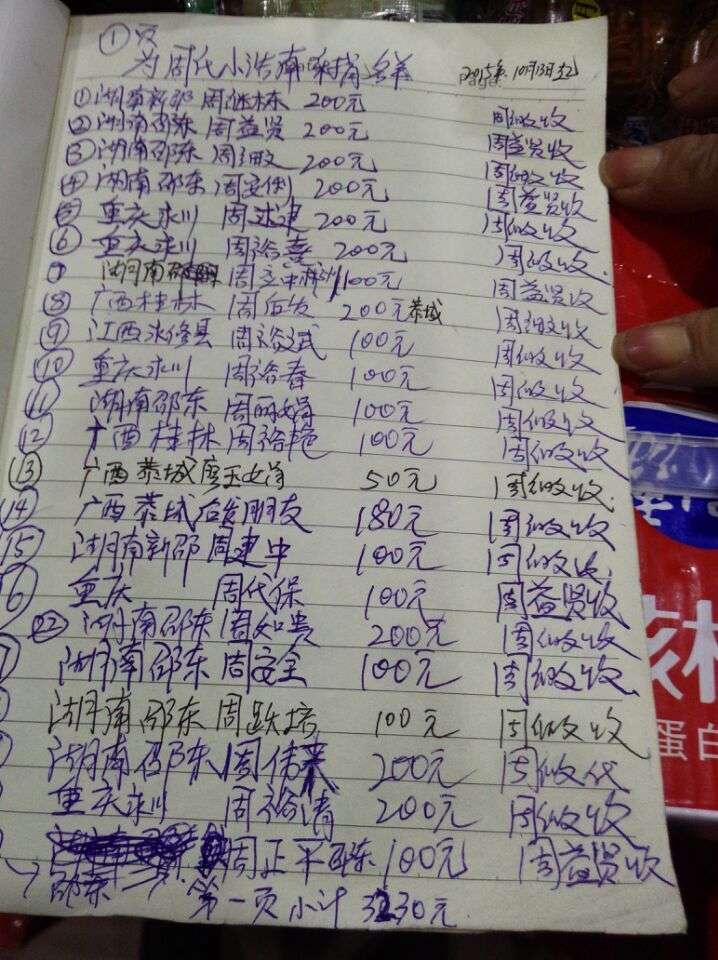 ①页
为周代小浩南 捐 2015年10月13日
①湖南新邵 周继栋 200元 周细收
②湖南邵东 周益贤 200元 周益贤收
③湖南邵东 周细收 200元 周细收收
④湖南邵东 周 200元 周益贤收
⑤重庆永川 周建 200元 周细收收
⑥重庆永川 周裕 200元 周细收收
湖南邵 周立 100元 周益贤收
⑧广西桂林 周 200元 恭城 周细收收
⑨江西永修县 周裕斌 100元 周细收收
⑩重庆永川 周裕春 100元 周细收收
⑪湖南邵东 周丽娟 100元 周细收收
⑫广西桂林 周裕艳 100元 周细收收
⑬广西恭城 唐玉 50元 周细收收
⑭广西恭城 朋友 180元 周细收收
⑮湖南新邵 周建中 100元 周细收收
6 重庆 周代保 100元 周益贤收
22 湖南邵东 周如贵 200元 周细收收
7 湖南邵东 周安全 100元 周细收收
湖南邵东 周跃培 100元 周细收收
湖南邵东 周伟 200元 周细收
重庆永川 周裕清 200元 周细收收
周正平 邵东 100元 周益贤收
邵东 第一页小计 3230元
核桃
蛋白